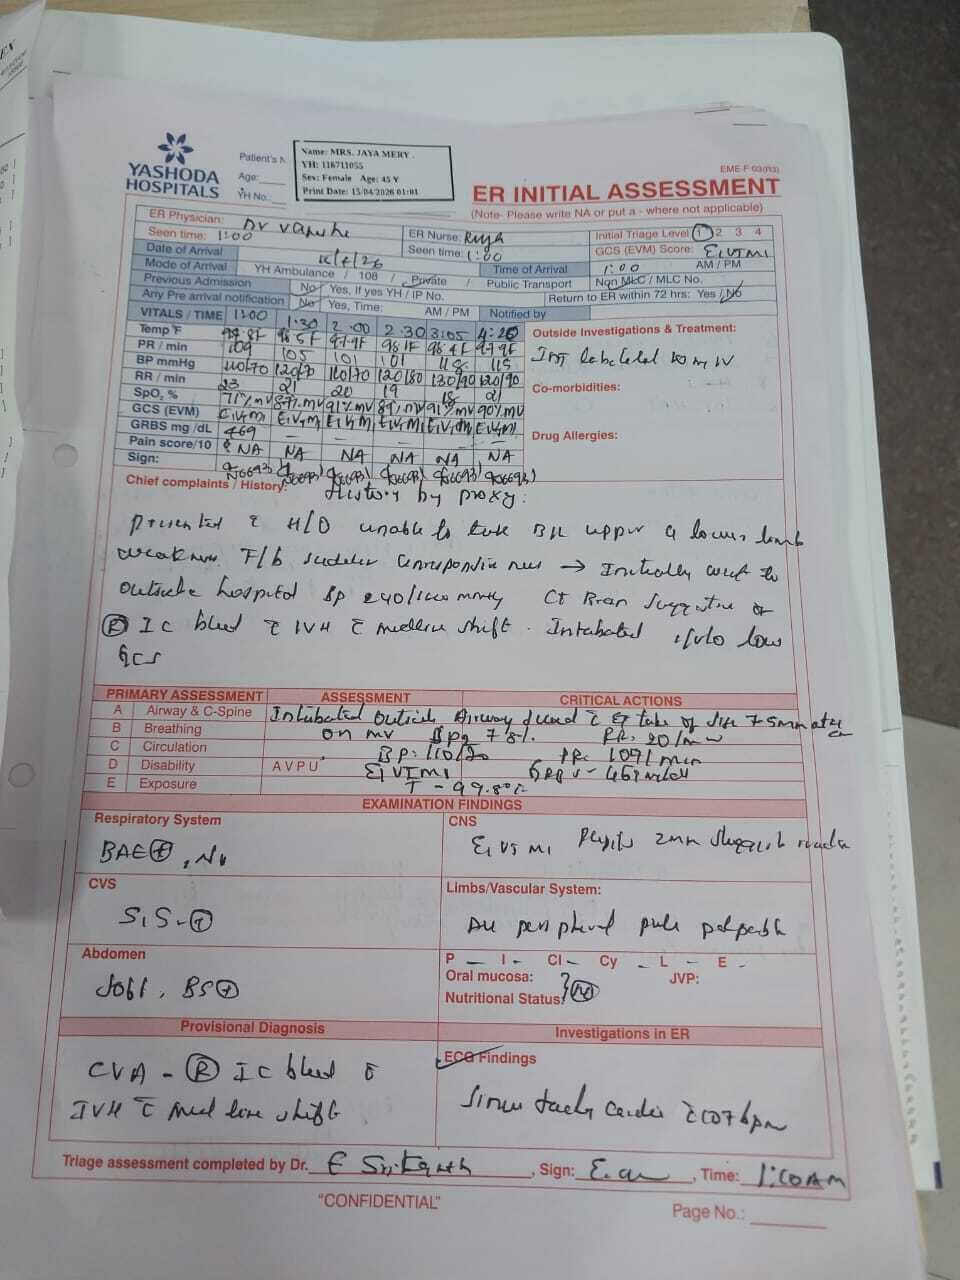 YASHODA
HOSPITALS
Patient's N
Age:
YH No.:
Name: MRS. JAYA MERY .
YH: 118711055
Sex: Female Age: 45 Y
Print Date: 15/04/2026 01:01
EME-F-03(R3)
ER INITIAL ASSESSMENT
(Note- Please write NA or put a - where not applicable)
ER Physician: Dr
ER Nurse:
Initial Triage Level 1 2 3 4
Seen time: 1:00
Seen time: 1:00
GCS (EVM) Score: E1VTM1
Date of Arrival
Time of Arrival 1:00 AM / PM
Mode of Arrival YH Ambulance / 108 / Private / Public Transport
Non MLC / MLC No.
Previous Admission No Yes, If yes YH / IP No.
Return to ER within 72 hrs: Yes / No
Any Pre arrival notification No Yes, Time: AM / PM Notified by
VITALS / TIME 1:00 1.30 2.00 2.30 3:05 4:20
Temp °F 98.5F 97.9F 98.1F 98.4F 97.9F
PR / min 109 105 101 101 118 115
BP mmHg 110/70 120/70 110/70 120/80 130/90 120/90
RR / min 23 21 20 19 18 21
SpO2 % 71% mv 87% mv 91% mv 89% mv 91% mv 90% mv
GCS (EVM)
GRBS mg/dL 469 – – – – –
Pain score/10 NA NA NA NA NA NA
Sign:
Outside Investigations & Treatment:
INJ labetalol IV
Co-morbidities:
Drug Allergies:
Chief complaints / History: History by proxy:
presented c̄ H/O unable to B/L upper & lower limb
weakness F/b sudden unresponsiveness → Initially went to
outside hospital Bp CT Brain suggestive of
Ⓡ IC bleed c̄ IVH c̄ midline shift. Intubated i/v/o low
GCS
PRIMARY ASSESSMENT ASSESSMENT CRITICAL ACTIONS
A Airway & C-Spine Intubated outside Airway
B Breathing on mv 78% RR: 20/min
C Circulation BP: 110/70 PR: 109/min
D Disability A V P U E1VTM1 GRBS - 469
E Exposure T - 99.8°F
EXAMINATION FINDINGS
Respiratory System
BAE⊕,
CNS
pupils 2mm sluggish
CVS
S1S2⊕
Limbs/Vascular System:
All peripheral pulse palpable
Abdomen
Soft, BS⊕
P – I – Cl – Cy – L – E –
Oral mucosa: JVP:
Nutritional Status: Ⓝ
Provisional Diagnosis
CVA - Ⓡ IC bleed c̄
IVH c̄ midline shift
Investigations in ER
ECG Findings
Sinus tachycardia 107 bpm
Triage assessment completed by Dr. E Srikanth, Sign: , Time: 1:10AM
"CONFIDENTIAL"
Page No.: